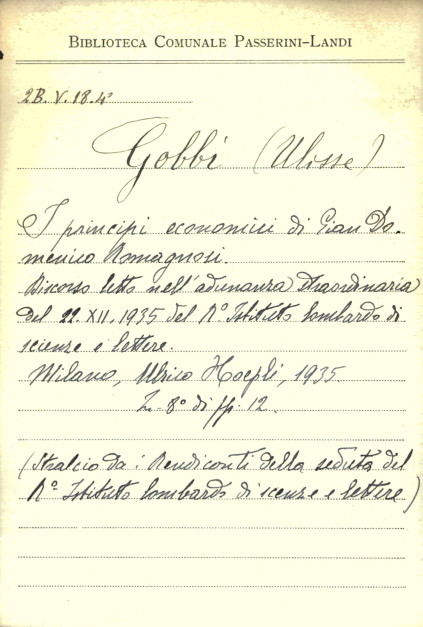 BIBLIOTECA COMUNALE PASSERINI-LANDI
2B. V. 18. 4º
Gobbi (Ulisse)
I principi economici di Gian Do-
menico Romagnosi.
Discorso letto nell'adunanza straordinaria
del 22. XII. 1935 del Rº Istituto lombardo di
scienze e lettere.
Milano, Ulrico Hoepli, 1935.
in-8º di pp. 12.
(Stralcio da: Rendiconti della seduta del
Rº Istituto lombardo di scienze e lettere)